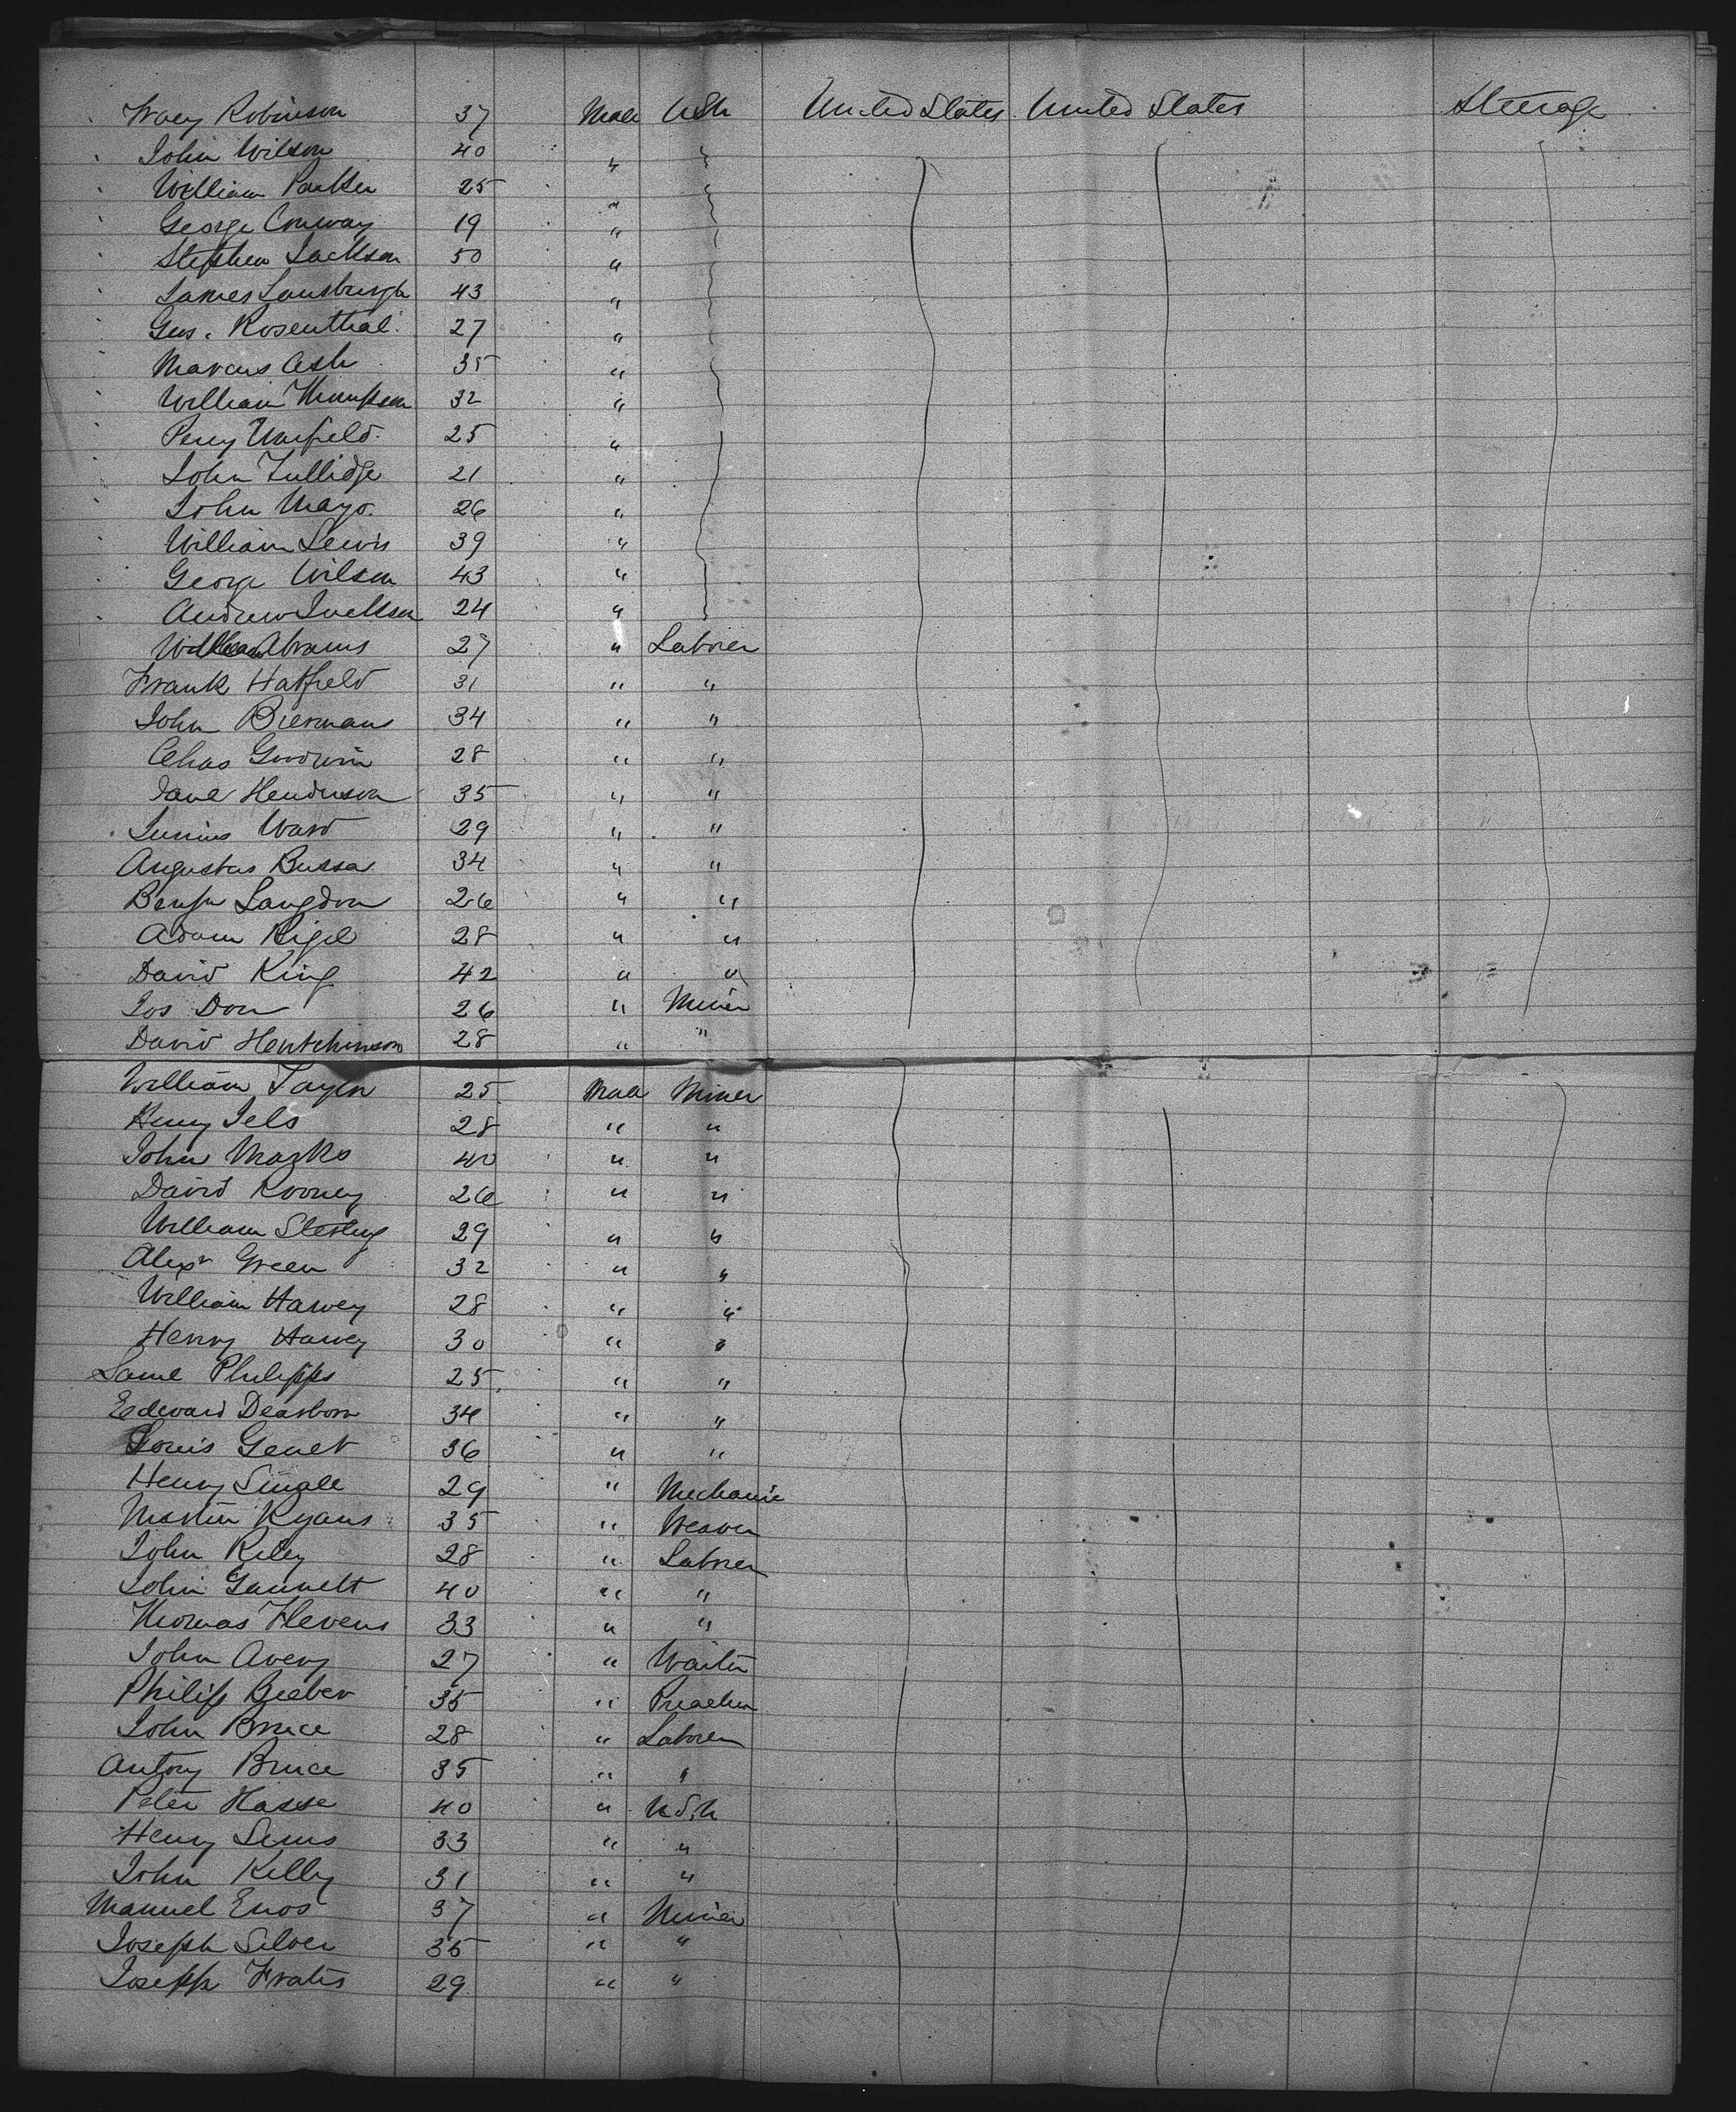 Tracy Robinson 37 Male USh United States United States Steerage
John Wilson 40 "
William Parker 25 "
George Conway 19 "
Stephen Jackson 50 "
James Lansburgh 43 "
Gus. Rosenthal 27 "
Marcus Ash 35 "
William Thompson 32 "
Percy Warfield 25 "
John Tullidge 21 "
John Mayo 26 "
William Lewis 39 "
George Wilson 43 "
Andrew Jackson 24 "
William Abrams 27 " Laborer
Frank Hatfield 31 " "
John Bierman 34 " "
Chas Goodwin 28 " "
Dave Henderson 35 " "
Junius Ward 29 " "
Augustus Bussa 34 " "
Benjn Langdon 26 " "
Adam Rigel 28 " "
David King 42 " "
Jos Don 26 " Miner
David Hentchinson 28 " "
William Taylor 25 Male Miner
Henry Iels 28 " "
John Marks 40 " "
David Rooney 26 " "
William Sterling 29 " "
Alexr Green 32 " "
William Harvey 28 " "
Henry Harvey 30 " "
Saml Philipps 25 " "
Edward Dearborn 34 " "
Louis Genet 36 " "
Henry 29 " Mechanic
Martin Ryans 35 " Weaver
John Riley 28 " Laborer
John Gannett 40 " "
Thomas Hevens 33 " "
John Avery 27 " Waiter
Philip Beeber 35 " Preacher
John Bruce 28 " Laborer
Antony Bruce 35 " "
Peter Hasse 40 " U.S.h
Henry Lewis 33 " "
John Kelly 31 " "
Manuel Enos 37 " Miner
Joseph Silver 35 " "
Joseph Frates 29 " "